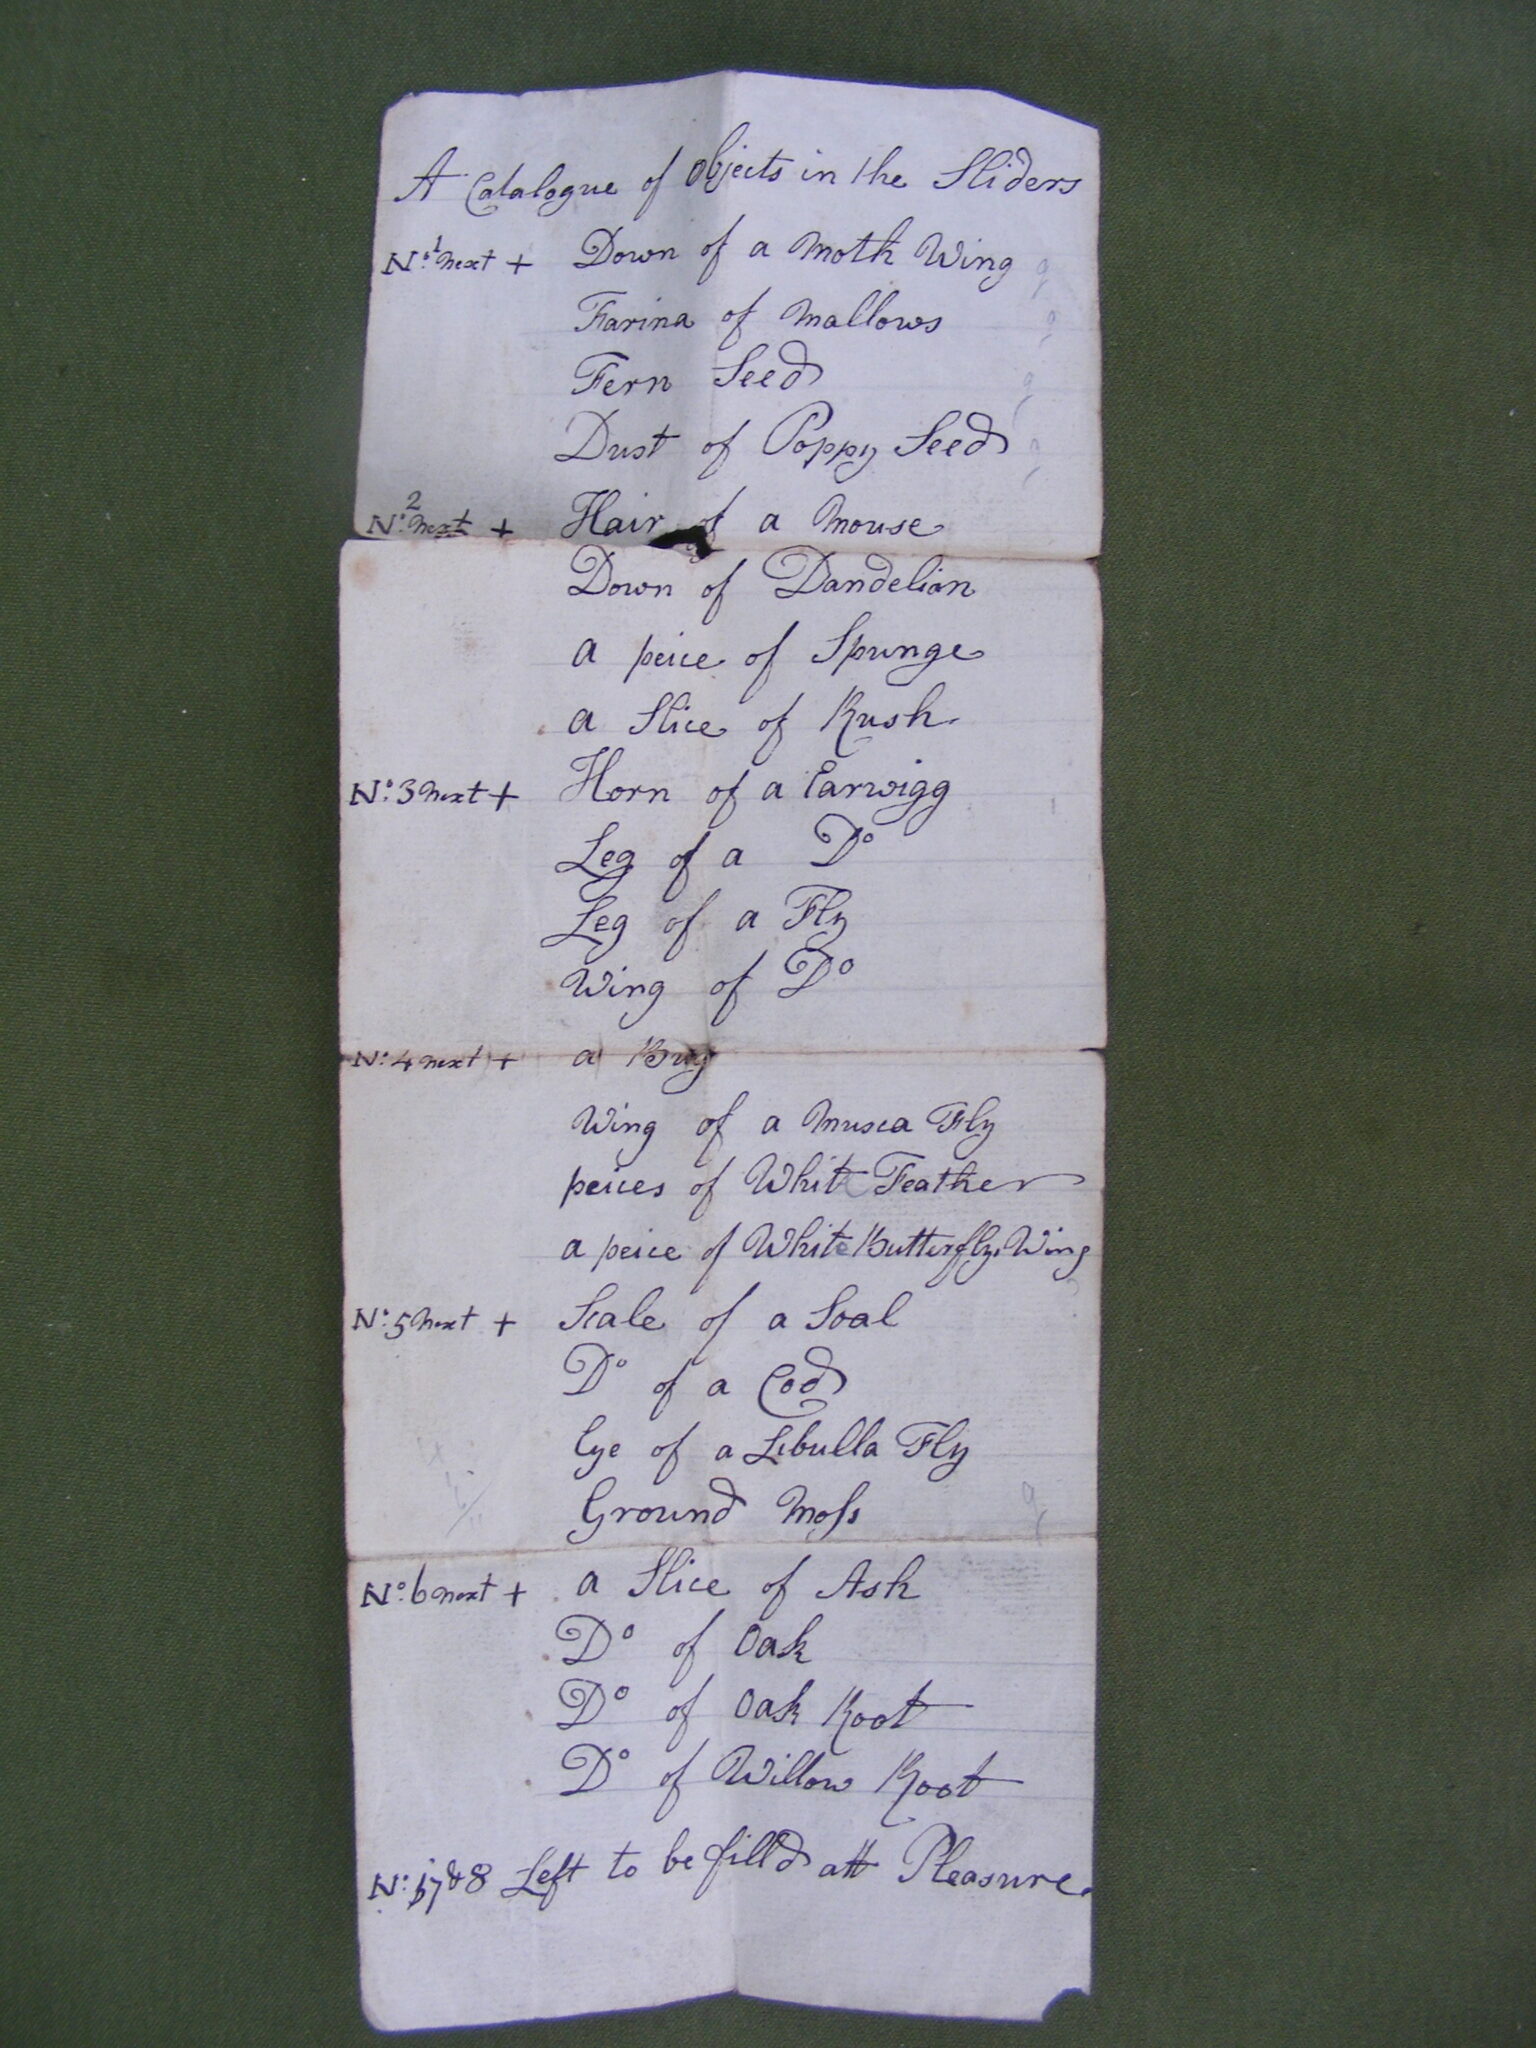 A Catalogue of Objects in the Sliders
No. 1 next + Down of a Moth Wing
Farina of Mallows
Fern Seed
Dust of Poppy Seed
No. 2 next + Hair of a Mouse
Down of Dandelion
a peice of Spunge
a Slice of Rush
No. 3 next + Horn of a Earwigg
Leg of a Do
Leg of a Fly
Wing of Do
No. 4 next + a Bug
Wing of a Musca Fly
peices of White Feather
a peice of White Butterfly Wing
No. 5 next + Scale of a Soal
Do of a Cod
Eye of a Libulla Fly
Ground Moſs
No. 6 next + a Slice of Ash
Do of Oak
Do of Oak Root
Do of Willow Root
No. 7 & 8 Left to be fill'd att Pleasure.